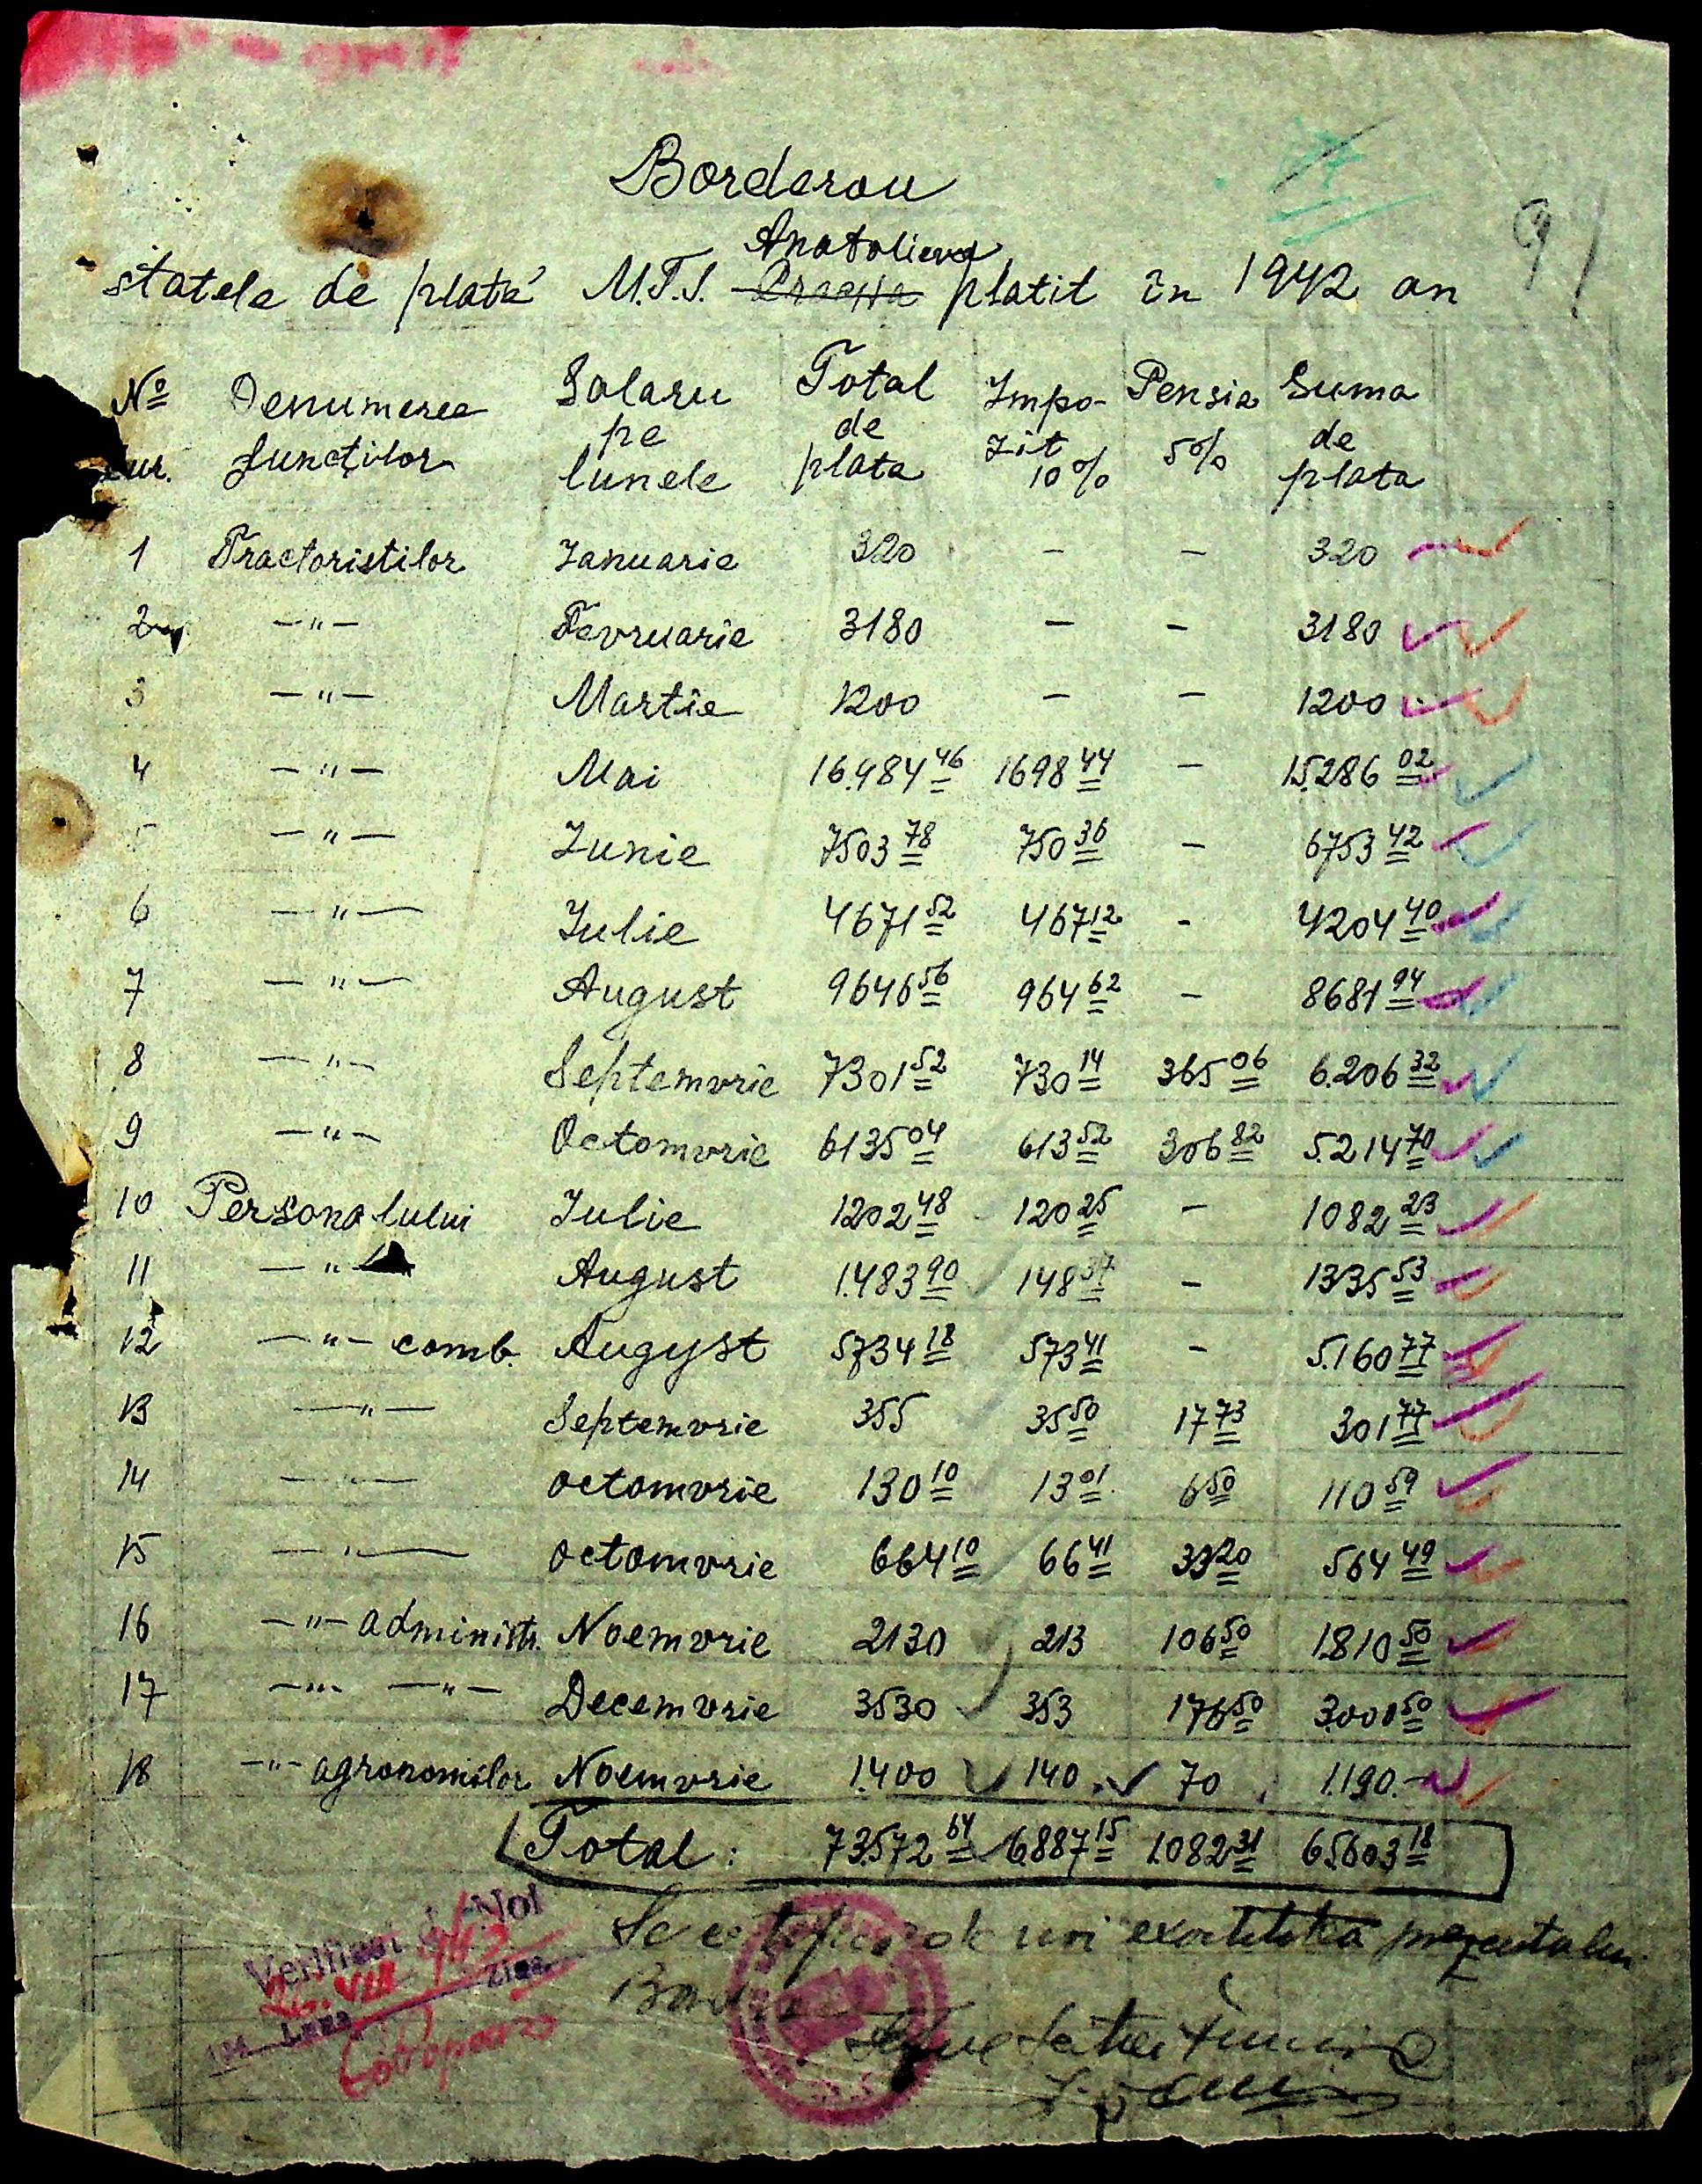 Borderou
Anatolieva
statele de plată M.T.S. platit în 1942 an
91
№ cur. Denumerea funcțiilor Salaru pe lunele Total de plata Impozit 10% Pensia 5% Suma de plata
1 Tractoristilor Ianuarie 320 — — 320
2 —"— Fevruarie 3180 — — 3180
3 —"— Martie 1200 — — 1200
4 —"— Mai 16.984 46 1698 44 — 15.286 02
—"— Iunie 7503 78 750 36 — 6753 42
6 —"— Iulie 4671 52 467 12 - 4204 40
7 —"— August 9646 56 964 62 — 8681 94
8 —"— Septemvrie 7301 52 730 14 365 06 6.206 32
9 —"— Octomvrie 6135 04 613 52 306 82 5.214 70
10 Personalului Iulie 1202 48 120 25 — 1082 23
11 —"— August 1.483 90 148 37 — 1335 53
12 —"— comb. Augyst 5734 18 573 41 — 5.160 77
13 —"— Septemvrie 355 35 50 17 73 301 77
14 —"— octomvrie 130 10 13 01 6 50 110 59
15 —"— octomvrie 664 10 66 41 33 20 564 49
16 —"— administr. Noemvrie 2130 213 106 50 1.810 50
17 —"— —"— Decemvrie 3530 353 176 50 3.000 50
18 —"— agronomilor Noemvrie 1.400 140 70 1.190.—
Total: 73.572 64 6.887 15 1.082 31 65.603 18
Verificat de Noi
Se
prezentului
Luna Ziua